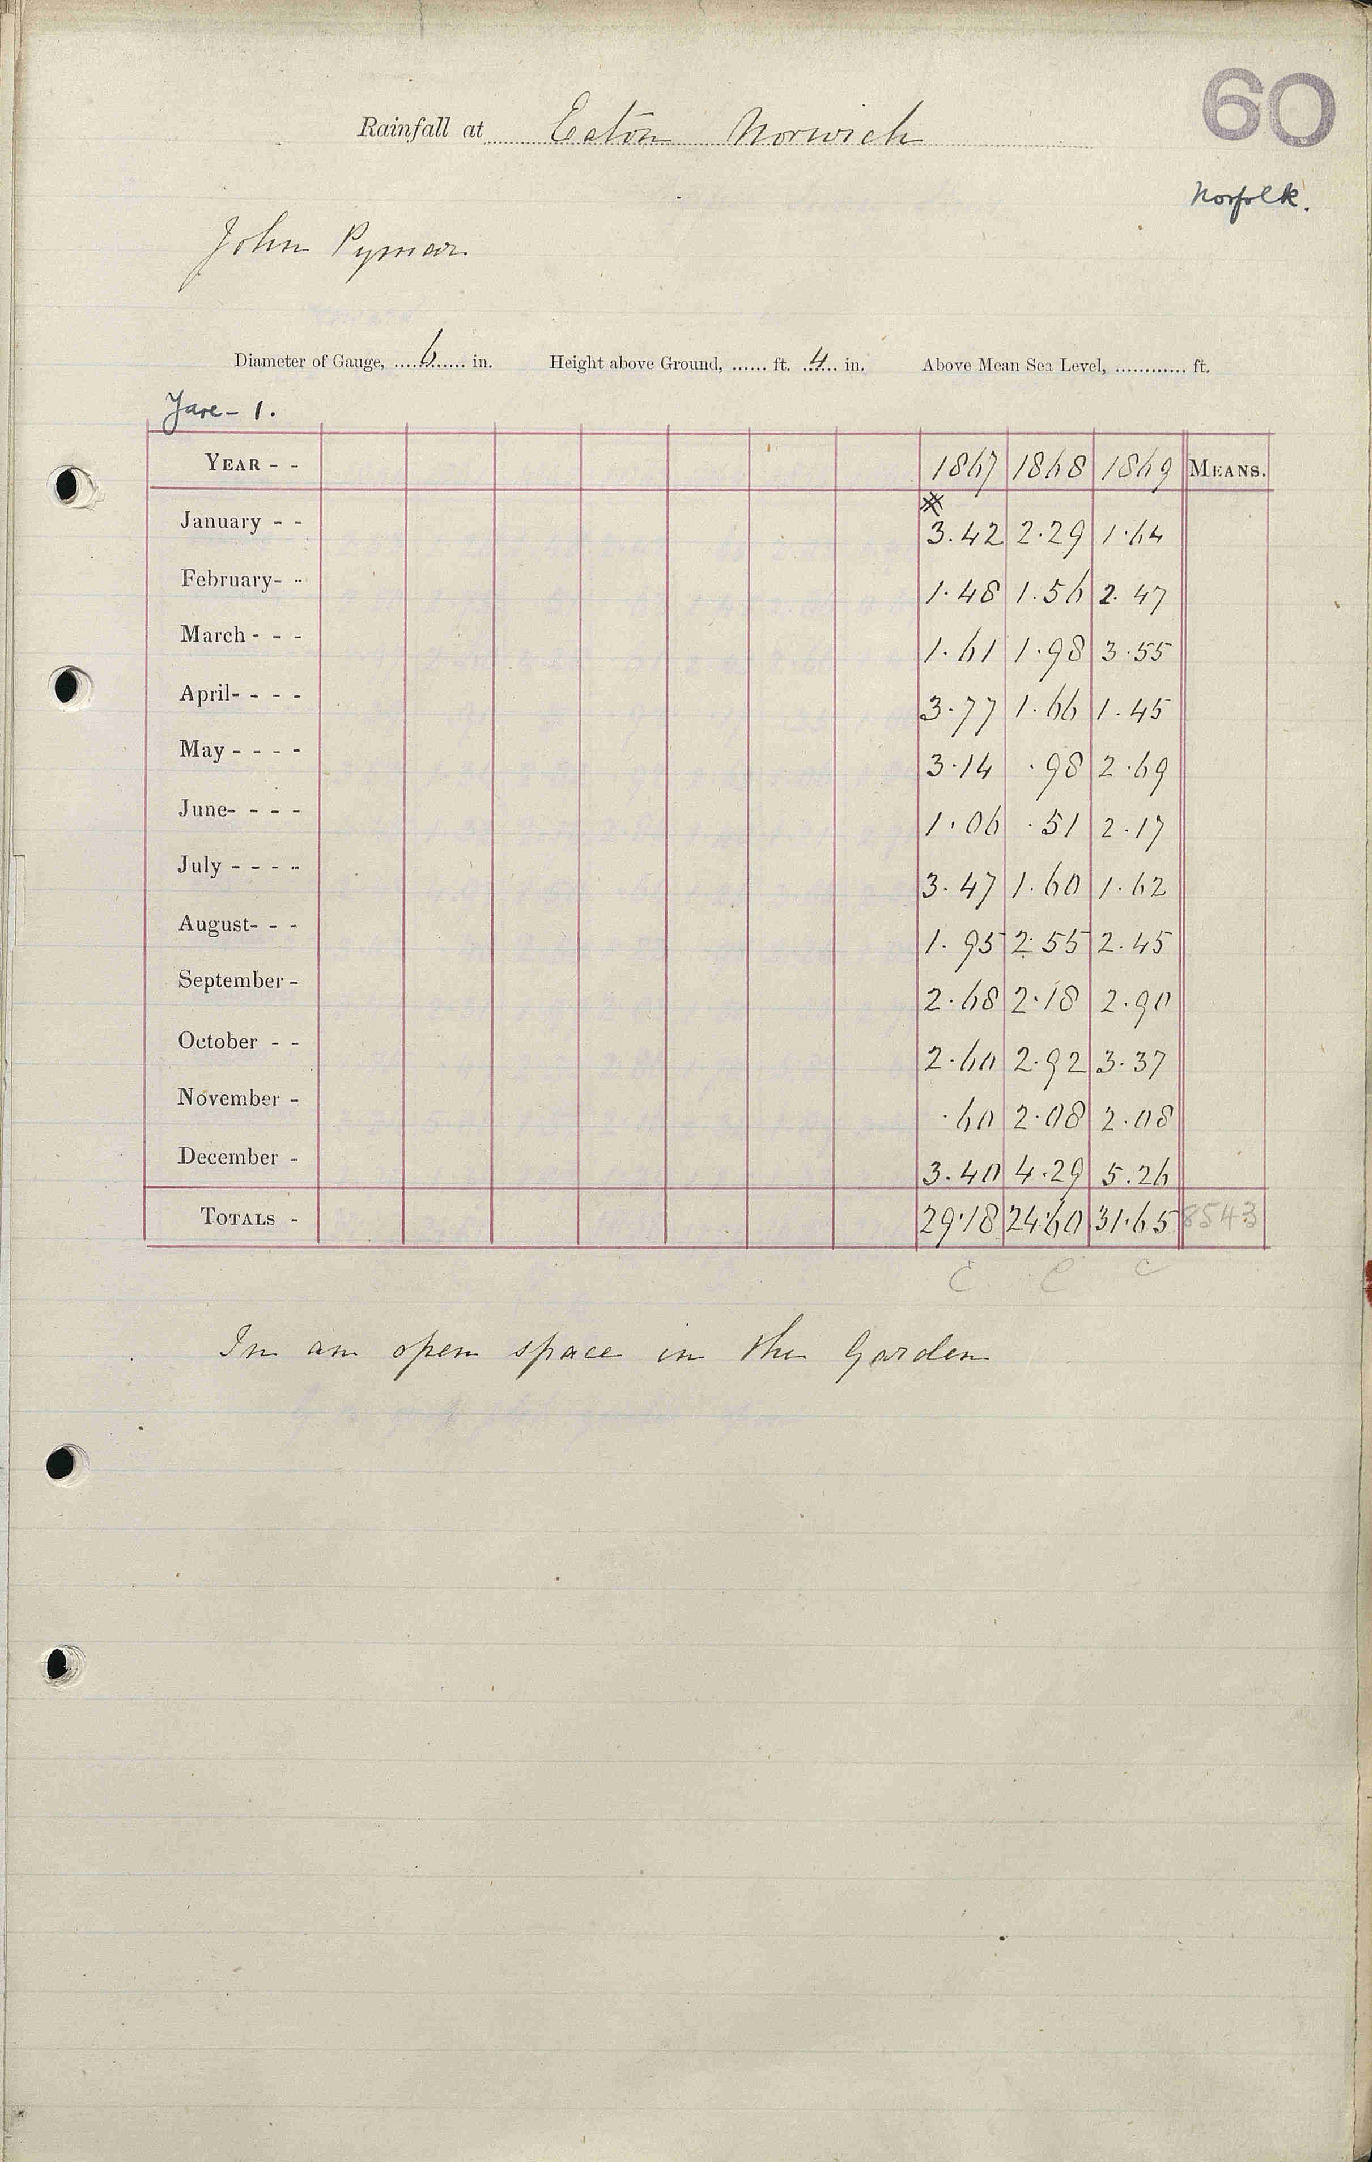 60
Rainfall at Eaton Norwich
Norfolk.
John Pymar
Diameter of Gauge, 6 in. Height above Ground, ...... ft. 4 in. Above Mean Sea Level, ............ ft.
Yare - 1.
YEAR - - 1867 1868 1869 MEANS.
January - - 3.42 2.29 1.64
February - - 1.48 1.56 2.47
March - - - 1.61 1.98 3.55
April - - - - 3.77 1.66 1.45
May - - - - 3.14 .98 2.69
June - - - - 1.06 .51 2.17
July - - - - 3.47 1.60 1.62
August - - - 1.95 2.55 2.45
September - 2.68 2.18 2.90
October - - 2.60 2.92 3.37
November - .60 2.08 2.08
December - 3.40 4.29 5.26
TOTALS - 29.18 24.60 31.65 8543
C C C
In an open space in the Garden